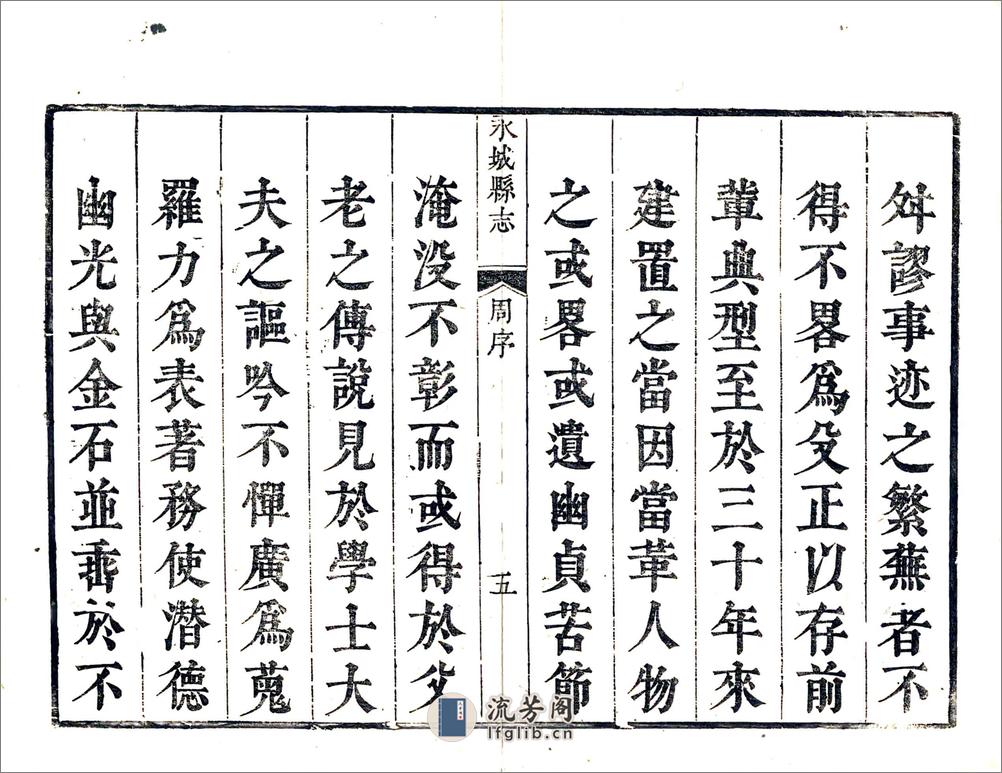 舛謬事迹之繁蕪者不
得不畧爲殳正以存前
軰典型至於三十年來
建置之當因當革人物
之或畧或遺幽貞苦節
永城縣志
周序
五
淹没不彰而或得於父
老之傳說見於學士大
夫之謳吟不憚廣爲蒐
羅力爲表著務使潛德
幽光與金石並垂於不
流芳阁
lfglib.cn